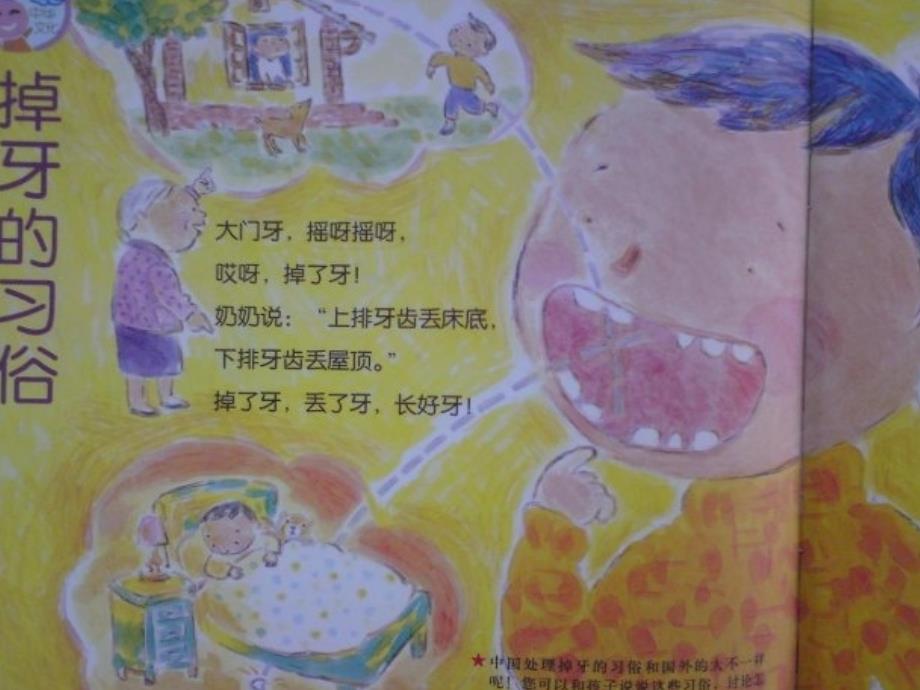 中华
文化
掉牙的习俗
大门牙，摇呀摇呀，
哎呀，掉了牙！
奶奶说：“上排牙齿丢床底，
下排牙齿丢屋顶。”
掉了牙，丢了牙，长好牙！
★中国处理掉牙的习俗和国外的大不一样
呢！您可以和孩子说说这些习俗，讨论怎